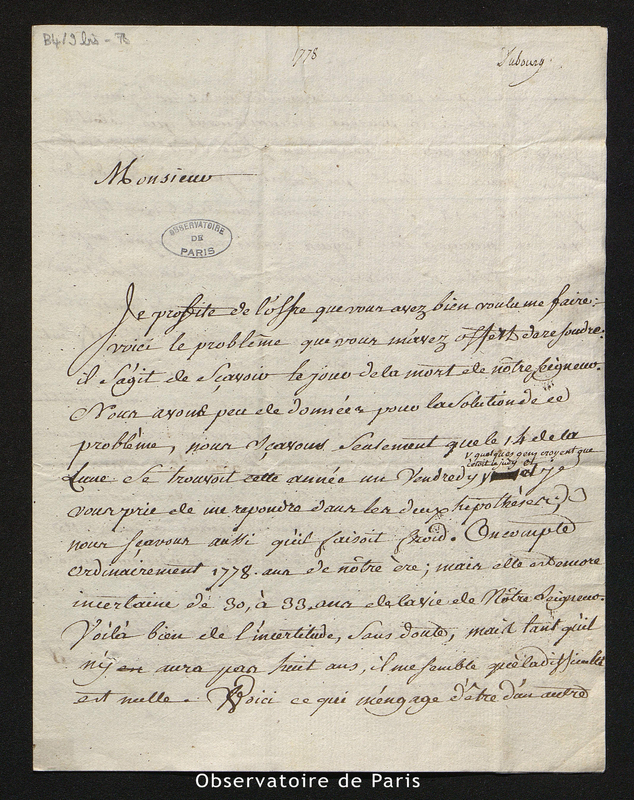 B4/9 bis - 78
1778
Dubourg
Monsieur
OBSERVATOIRE
DE
PARIS
Je profite de l'offre que vous avez bien voulu me faire :
voici le problême que vous m'avez offert de resoudre.
il s'agit de sçavoir le jour de la mort de nôtre Seigneur.
Nous avons peu de données pour la solution de ce
problême, nous sçavons seulement que le 14 de la
v quelques gens croyent que
c'etoit le judy et
Lune se trouvoit cette année un Vendredy v je
vous prie de me repondre dans les deux hÿpothéses ;
nous sçavons aussi qu'il faisoit froid. On compte
ordinairement 1778. ans de nôtre ère ; mais elle est encore
incertaine de 30, à 33. ans de la vie de Nôtre Seigneur.
Voilà bien de l'incertitude, sans doute, mais tant qu'il
n'y en aura pas huit ans, il me semble que la difficulté
est nulle. Voici ce qui m'engage d'être d'un autre
Observatoire de Paris